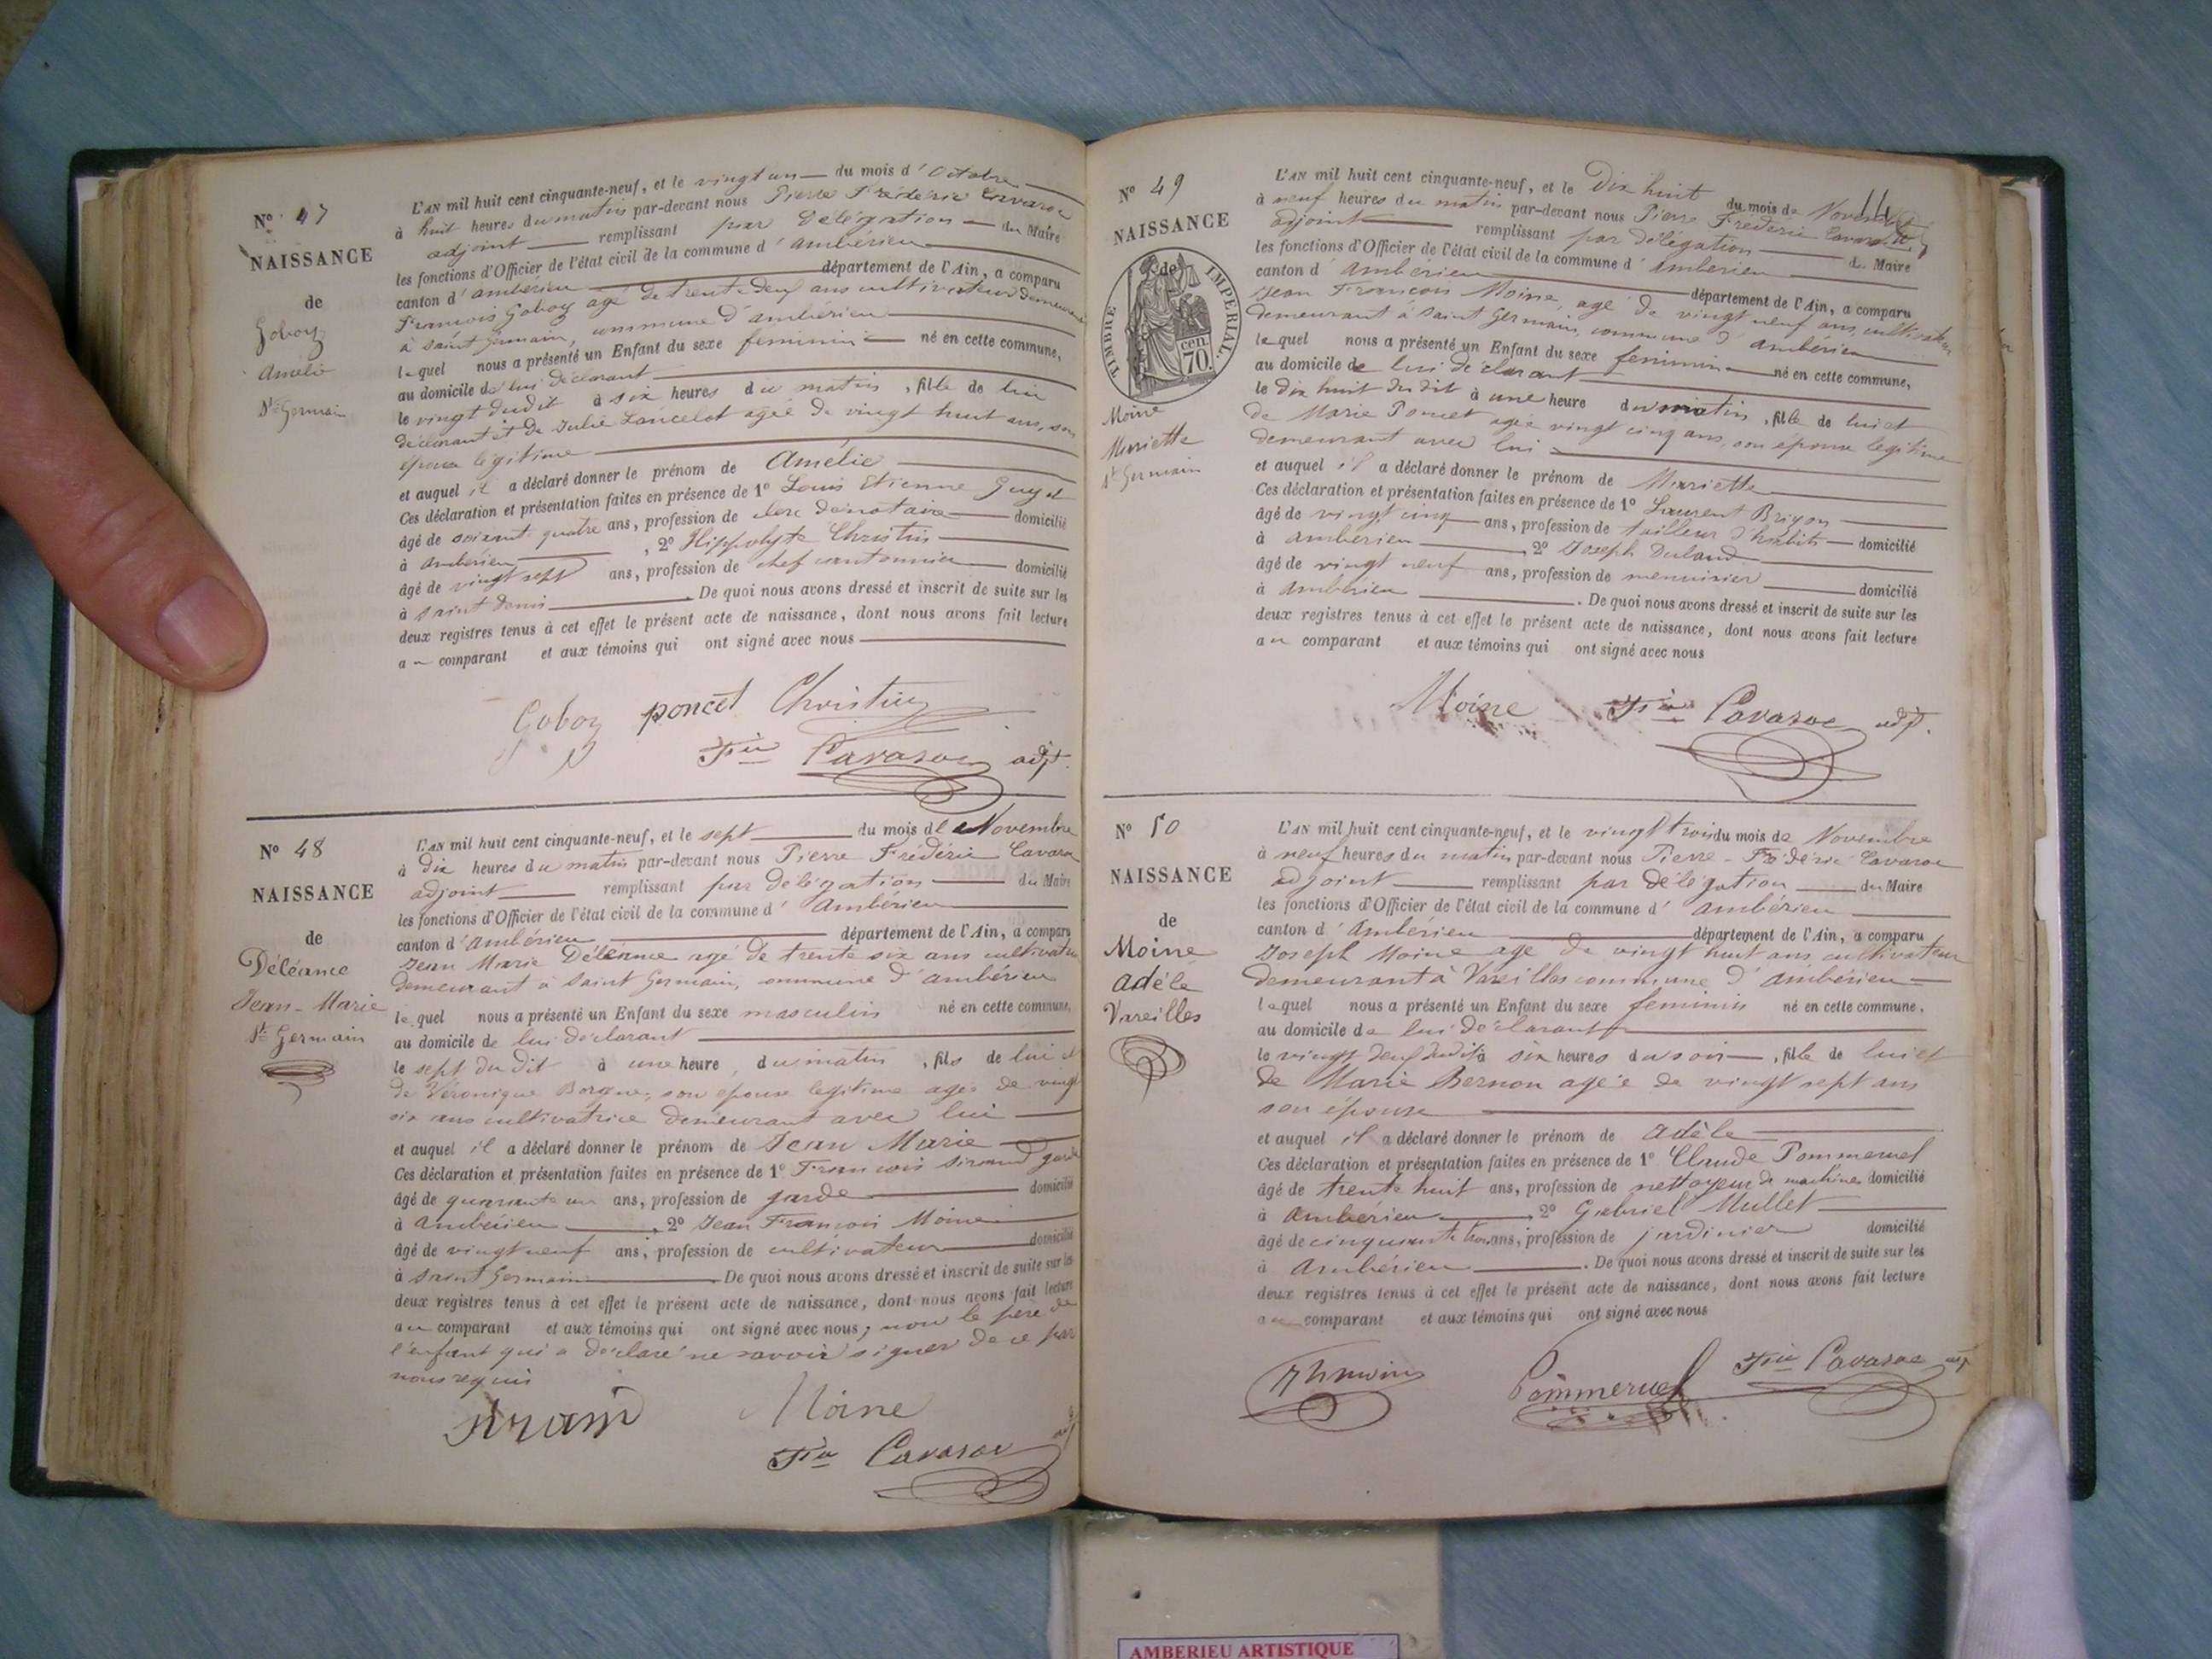 N° 47
NAISSANCE
de
Goboz
Amélie
St Germain
L'AN mil huit cent cinquante-neuf, et le vingt un du mois d'Octobre
à huit heures du matin par-devant nous Pierre Frédéric Cavaroc
adjoint remplissant par délégation du Maire
les fonctions d'Officier de l'état civil de la commune d'ambérieu
canton d'ambérieu département de l'Ain, a comparu
François Goboz agé de trente deux ans cultivateur demeurant
à saint Germain, commune d'ambérieu
lequel nous a présenté un Enfant du sexe feminin né en cette commune,
au domicile de lui déclarant
le vingt dudit à six heures du matin, fille de lui
déclarant et de Julie Lancelot agée de vingt huit ans, son
épouse légitime
et auquel il a déclaré donner le prénom de Amélie
Ces déclaration et présentation faites en présence de 1° Louis Etienne
âgé de soixante quatre ans, profession de clerc de notaire domicilié
à ambérieu, 2° Hippolyte Christin
âgé de vingt sept ans, profession de chef cantonnier domicilié
à saint denis. De quoi nous avons dressé et inscrit de suite sur les
deux registres tenus à cet effet le présent acte de naissance, dont nous avons fait lecture
au comparant et aux témoins qui ont signé avec nous
Goboz poncet Christin
Fric Cavaroc adjt.
N° 48
NAISSANCE
de
Déléance
Jean-Marie
St Germain
L'AN mil huit cent cinquante-neuf, et le sept du mois de Novembre
à dix heures du matin par-devant nous Pierre Frédéric Cavaroc
adjoint remplissant par délégation du Maire
les fonctions d'Officier de l'état civil de la commune d'Ambérieu
canton d'Ambérieu département de l'Ain, a comparu
Jean Marie Déléance agé de trente six ans cultivateur
demeurant à Saint Germain, commune d'ambérieu
lequel nous a présenté un Enfant du sexe masculin né en cette commune,
au domicile de lui déclarant
le sept du dit à une heure du matin, fils de lui et
de Véronique son epouse legitime agée de vingt
six ans cultivatrice demeurant avec lui
et auquel il a déclaré donner le prénom de Jean Marie
Ces déclaration et présentation faites en présence de 1° François Sirand garde
âgé de quarante un ans, profession de garde domicilié
à ambérieu, 2° Jean François Moine
âgé de vingt neuf ans, profession de cultivateur domicilié
à Saint Germain. De quoi nous avons dressé et inscrit de suite sur les
deux registres tenus à cet effet le présent acte de naissance, dont nous avons fait lecture
au comparant et aux témoins qui ont signé avec nous, non le père de
l'enfant qui a déclaré ne savoir signer de ce par
nous requis
Sirand Moine
Fric Cavaroc adj
N° 49
NAISSANCE
de
TIMBRE IMPERIAL.
cen.
70.
Moine
Mariette
St Germain
L'AN mil huit cent cinquante-neuf, et le Dix huit du mois de Novembre
à neuf heures du matin par-devant nous Pierre Frédéric Cavaroc
adjoint remplissant par délégation du Maire
les fonctions d'Officier de l'état civil de la commune d'ambérieu
canton d'ambérieu département de l'Ain, a comparu
Jean François Moine, agé de vingt neuf ans, cultivateur
demeurant à Saint Germain, commune d'ambérieu
lequel nous a présenté un Enfant du sexe feminin né en cette commune,
au domicile de lui déclarant
le dix huit du dit à une heure du matin, fille de lui et
de Marie Poncet agée vingt cinq ans, son epouse legitime
demeurant avec lui
et auquel il a déclaré donner le prénom de Mariette
Ces déclaration et présentation faites en présence de 1° Laurent
âgé de vingt cinq ans, profession de tailleur d'habits domicilié
à ambérieu, 2° Joseph
âgé de vingt neuf ans, profession de menuisier domicilié
à ambérieu. De quoi nous avons dressé et inscrit de suite sur les
deux registres tenus à cet effet le présent acte de naissance, dont nous avons fait lecture
au comparant et aux témoins qui ont signé avec nous
Moine Fric Cavaroc adjt.
N° 50
NAISSANCE
de
Moine
adèle
Vareilles
L'AN mil huit cent cinquante-neuf, et le vingt trois du mois de Novembre
à neuf heures du matin par-devant nous Pierre-Frédéric Cavaroc
adjoint remplissant par délégation du Maire
les fonctions d'Officier de l'état civil de la commune d'ambérieu
canton d'ambérieu département de l'Ain, a comparu
Joseph Moine age de vingt huit ans cultivateur
demeurant à Vareilles commune d'ambérieu
lequel nous a présenté un Enfant du sexe feminin né en cette commune,
au domicile de lui déclarant
le vingt deux dudit à six heures du soir, fille de lui et
de Marie Bernon agée de vingt sept ans
son épouse
et auquel il a déclaré donner le prénom de adèle
Ces déclaration et présentation faites en présence de 1° Claude Pommeruel
âgé de trente huit ans, profession de nettoyeur de machines domicilié
à Ambérieu, 2° Gabriel Mullet
âgé de cinquante trois ans, profession de jardinier domicilié
à Ambérieu. De quoi nous avons dressé et inscrit de suite sur les
deux registres tenus à cet effet le présent acte de naissance, dont nous avons fait lecture
au comparant et aux témoins qui ont signé avec nous
Pommeruel Fric Cavaroc adjt
AMBERIEU ARTISTIQUE